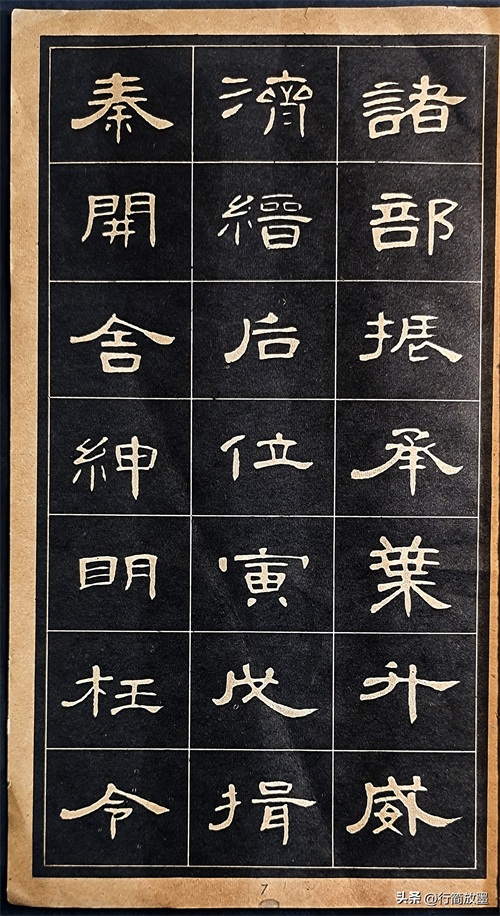 諸部振承葉升威
濟縉后位寅戊揖
秦開舍紳明枉令
7
头条 @行简放墨